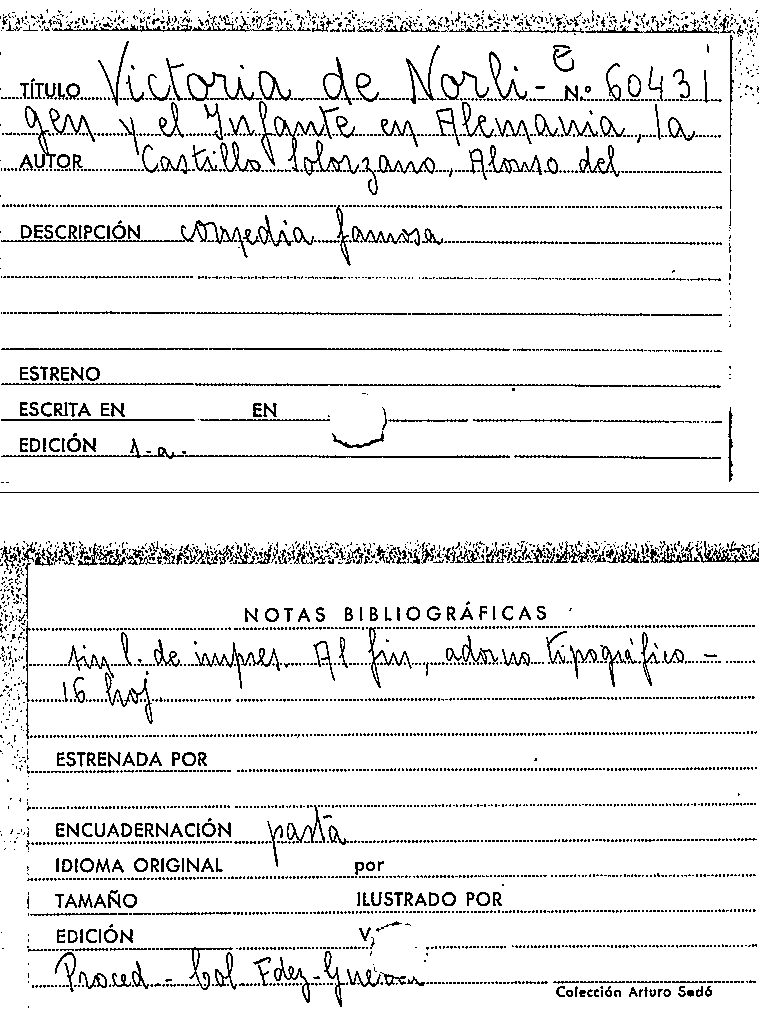 TÍTULO Victoria de Norli- e N.º 60431
gen y el Infante en Alemania, la
AUTOR Castillo Solorzano, Alonso del
DESCRIPCIÓN comedia famosa
ESTRENO
ESCRITA EN EN
EDICIÓN s.a.
NOTAS BIBLIOGRÁFICAS
sin l. de impres. Al fin, adorno tipográfico -
16 hoj
ESTRENADA POR
ENCUADERNACIÓN pasta
IDIOMA ORIGINAL por
TAMAÑO ILUSTRADO POR
EDICIÓN V,
Proced - Col Fdez-Guerra
Colección Arturo Sedó